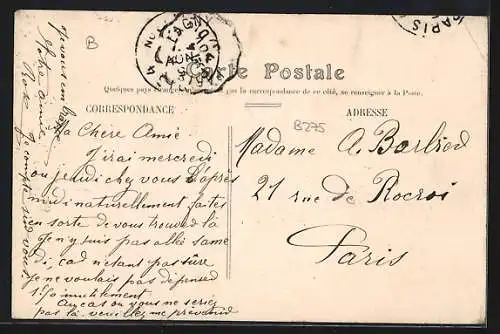 B
LAGNY
PARIS
Carte Postale
Quelques pays étrangers n'acceptant pas la correspondance de ce côté, se renseigner à la Poste.
CORRESPONDANCE
ADRESSE
B275
Ma Chère Amie
J'irai mercredi
ou jeudi chez vous l'après
midi naturellement faites
en sorte de vous trouver là
Je n'y suis pas allée same
di, car n'étant pas sûre
je ne voulais pas dépenser
inutilement
Au cas où vous ne seriez
pas là veuillez me prévenir
Je compte sur vous
Je vous embrasse
Votre amie
Rose
Madame A. Barbier
21 rue de Rocroi
Paris